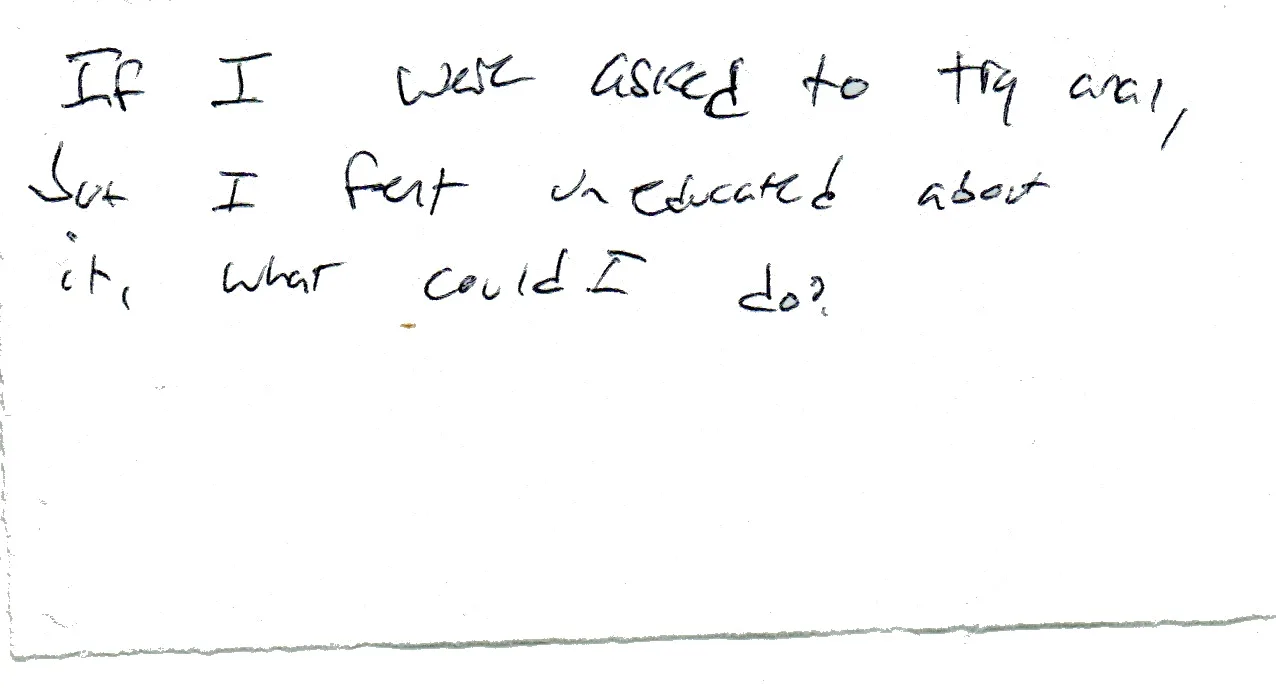 If I were asked to try anal,
but I felt uneducated about
it, what could I do?